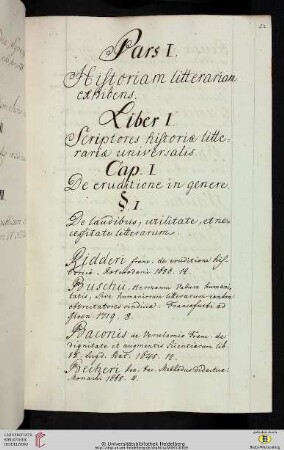 Pars I.
Historiam litterariam
exhibens.
Liber I.
Scriptores historiæ litte-
rariæ universalis.
Cap. I.
De eruditione in genere.
§. I.
De laudibus, utilitate, et ne-
cessitate litterarum.
Ridderi franc. de eruditione his-
toria. Roterodami 1680. 12.
Buschii, Hermanni Vallum humani-
tatis, sive humaniorum litterarum contra
obtrectatores vindiciæ. Francofurti ad
1719. 8.
Baconis de Verulamio Franc. de
dignitate et augmentis scientiarum lib.
Lugd. Bat. 1645. 12.
Becheri Methodus didactica
Monach. 1668. 4.
Universitätsbibliothek Heidelberg